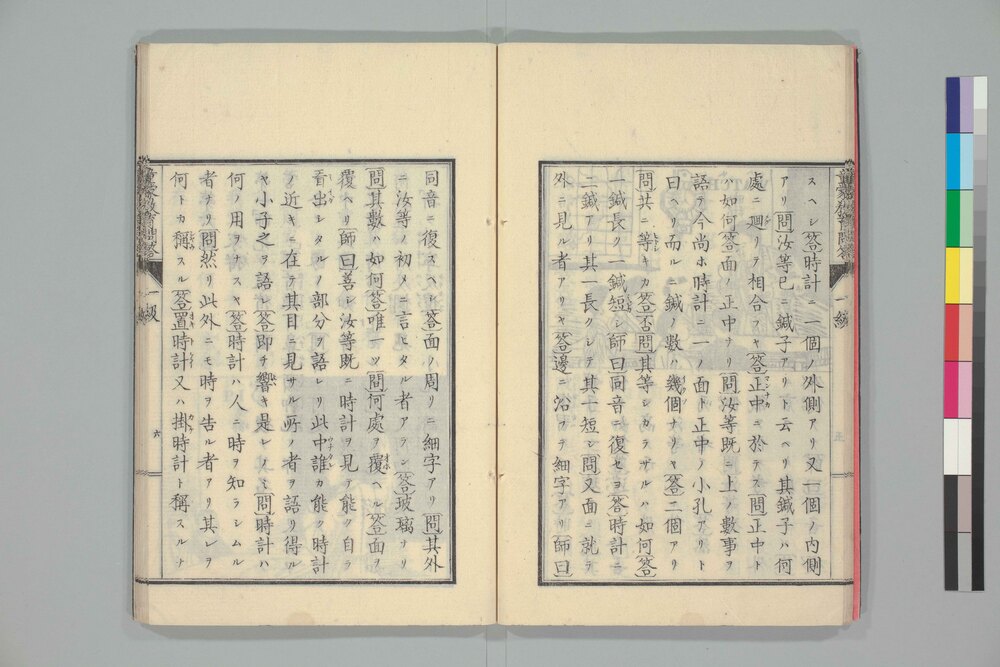 スヘシ答時計ニ一個ノ外側アリ又一個ノ内側
アリ問汝等已ニ鍼子アリト云ヘリ其鍼子ハ何
處ニ廻リテ相合スヤ答正中ニ於テス問正中ト
ハ如何答面ノ正中ナリ問汝等既ニ上ノ數事ヲ
語テ今尚ホ時計ニ一ノ面ト正中ノ小孔アリト
曰ヘリ而ルニ鍼ノ數ハ幾個ナリヤ答二個アリ
問共ニ等キカ答否問其等シカラザルハ如何答
一鍼長ク一鍼短シ師曰同音ニ復セヨ答時計ニ
二鍼アリ其一長クシテ其一短シ問又面ニ就テ
外ニ見ル者アリヤ答邊ニ沿フテ細字アリ師曰
一級
同音ニ復スヘシ答面ノ周リニ細字アリ問其外
ニ汝等ノ初メニ言ヒタル者アラン答玻璃ナリ
問其數ハ如何答唯一ツ問何處ヲ覆ヘル答面ヲ
覆ヘリ師曰善シ汝等既ニ時計ヲ見テ能ク自ラ
看出シタルノ部分ヲ語レリ此中誰カ能ク時計
ノ近キニ在テ其目ニ見サル所ノ者ヲ語リ得ル
ヤ小子之ヲ語レ答即チ響キ是レノミ問時計ハ
何ノ用ヲナスヤ答時計ハ人ニ時ヲ知ラシムル
者ナリ問然リ此外ニモ時ヲ告ル者アリ其レヲ
何トカ稱スル答置時計又ハ掛時計ト稱スルナ
一級
六